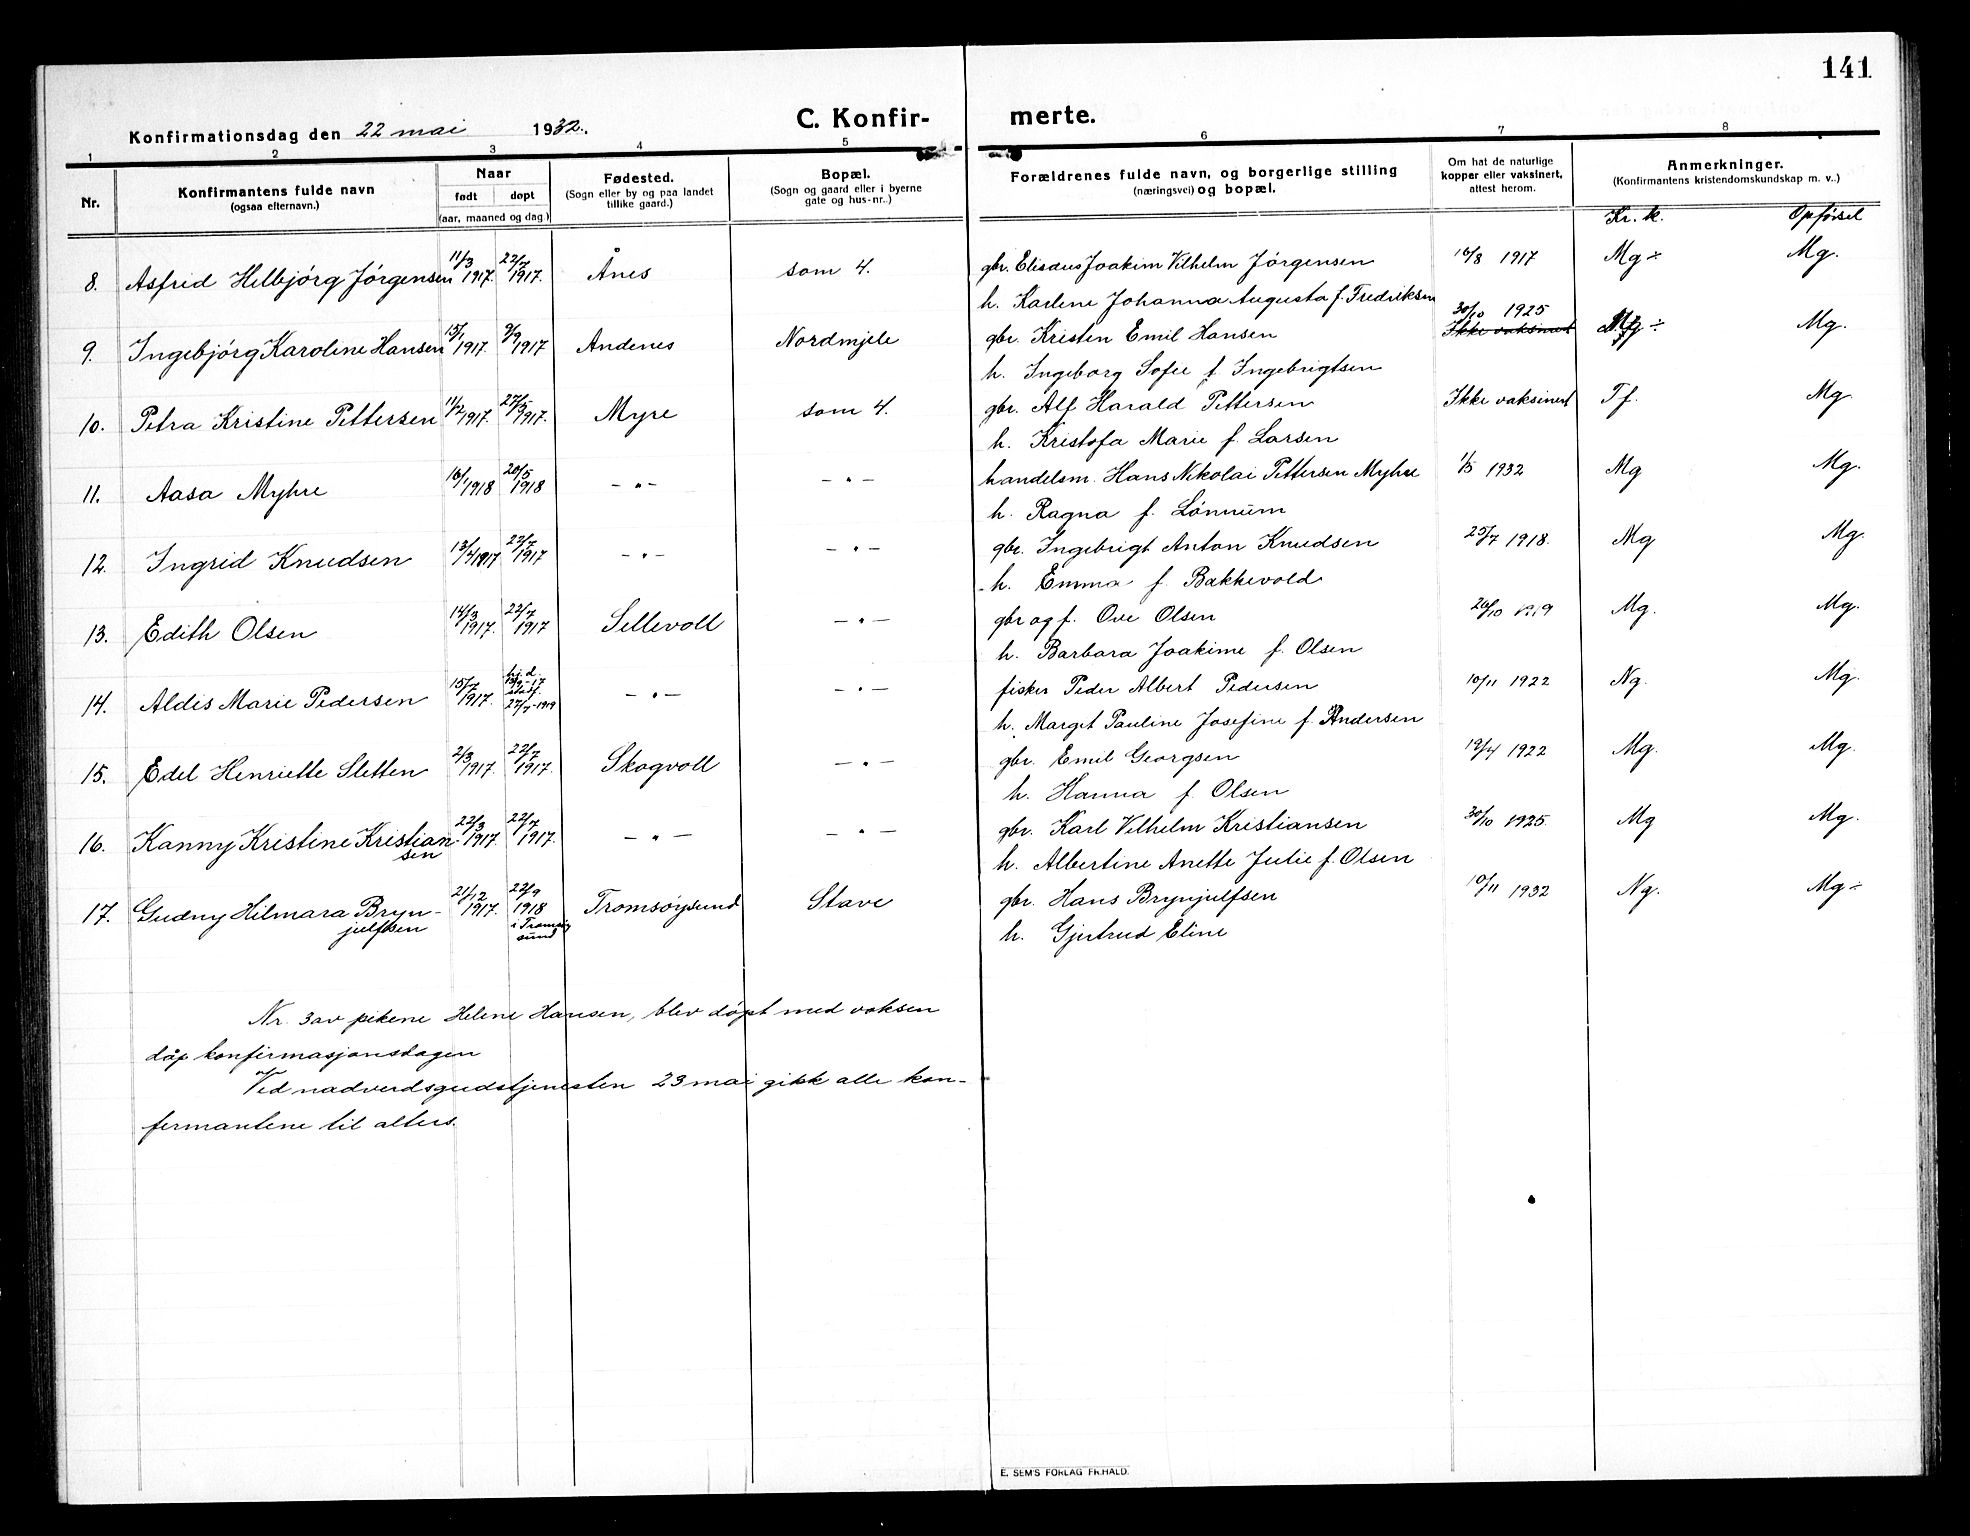 141
Konfirmationsdag den 22 mai 1932.
C. Konfir- merte.
1 2 3 4 5 6 7 8
Nr.
Konfirmantens fulde navn
(ogsaa efternavn.)
Naar
født døpt
(aar, maaned og dag.)
Fødested.
(Sogn eller by og paa landet
tillike gaard.)
Bopæl.
(Sogn og gaard eller i byerne
gate og hus-nr..)
Forældrenes fulde navn, og borgerlige stilling
(næringsvei) og bopæl.
Om hat de naturlige
kopper eller vaksinert,
attest herom.
Anmerkninger.
(Konfirmantens kristendomskundskap m. v..)
Kr. k. Opførsel
8. Asfrid Helbjörg Jörgensen 11/3 1917. 22/7 1917. Ånes som 4. gbr. Eliseus Joakim Vilhelm Jörgensen 16/8 1917 Mg ÷ Mg.
h. Karline Johanna Augusta f. Fredriksen
30/10 1925
9. Ingebjörg Karoline Hansen 15/1 1917. 9/9 1917 Andenes Nordmjele gbr. Kristen Emil Hansen Ikke vaksinert Mg ÷ Mg.
h. Ingeborg Sofie f. Ingebrigtsen
10. Petra Kristine Pettersen 11/2 1917. 27/5 1917. Myre som 4. gbr. Alf Harald Pettersen Ikke vaksinert Tf. Mg
h. Kristofa Marie f. Larsen
11. Aasa Myhre 16/1 1918 20/5 1918 - " - - " - handelsm. Hans Nikolai Pettersen Myhre 1/5 1932 Mg Mg.
h. Ragna f. Lönnüm
12. Ingrid Knudsen 13/4 1917 22/7 1917 - " - - " - gbr. Ingebrigt Anton Knudsen 25/7 1918. Mg Mg.
h. Emma f. Bakkevold
13. Edith Olsen 14/3 1917. 22/7 1917 Sellevoll - " - gbr og f. Ove Olsen 26/10 1919 Mg. Mg.
h. Barbara Joakime f. Olsen
14. Aldis Marie Pedersen 15/7 1917. hj.d. 27/7-1919 - " - - " - fisker Peder Albert Pedersen 10/11 1922 Ng. Mg.
h. Marget Pauline Josefine f. Andersen
15. Edel Henriette Sletten 2/3 1917. 22/7 1917. Skogvoll - " - gbr. Emil Georgsen 19/4 1922 Mg. Mg.
h. Hanna f. Olsen
16. Kanny Kristine Kristian 22/3 1917. 22/7 1917. - " - - " - gbr. Karl Vilhelm Kristiansen 30/10 1925. Mg Mg.
sen
h. Albertine Anette Julie f. Olsen
17. Gudny Hilmara Bryn- 21/12 1917. 22/9 1918 Tromsöysund Stave gbr. Hans Brynjulfsen 10/11 1932 Ng. Mg ÷
julfsen i Tromsöy
sund
h. Gjertrud Eline
Nr. 3 av pikene Helene Hansen, blev döpt med voksen
dåp konfirmasjonsdagen
Ved nadverdsgudstjenesten 23 mai gikk alle kon-
fermantene til alters.
E. SEM'S FORLAG FR.HALD.